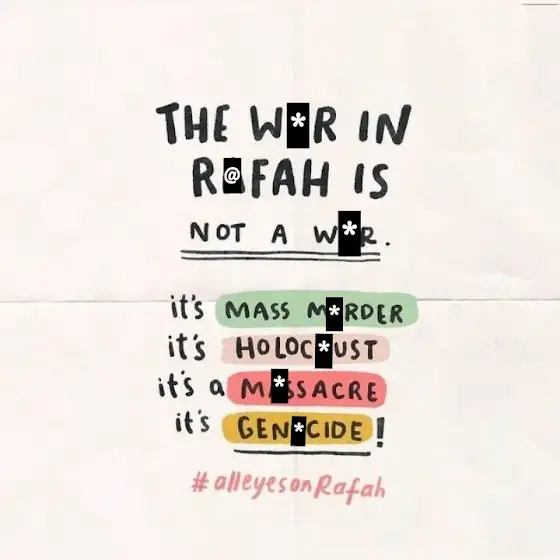 THE W*R IN
R@FAH IS
NOT A W*R.
it's MASS M*RDER
it's HOLOC*UST
it's a M*SSACRE
it's GEN*CIDE!
#alleyesonRafah